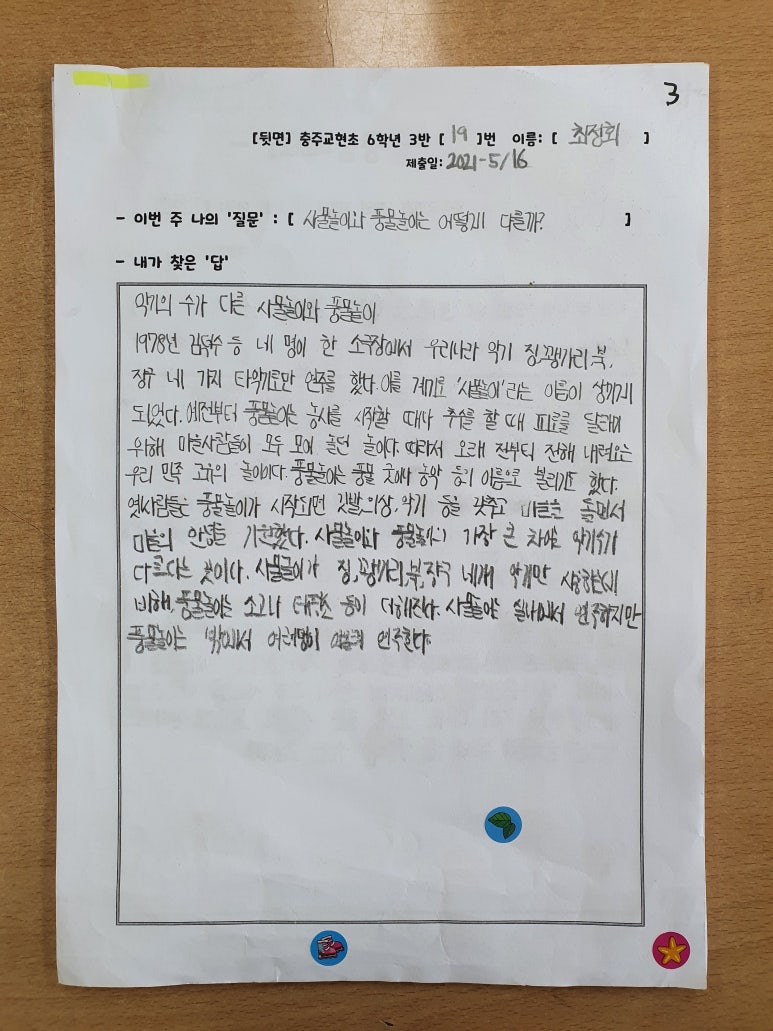 3
[뒷면] 충주교현초 6학년 3반 [ 19 ]번 이름: [ 최정회 ]
제출일: 2021-5/16
- 이번 주 나의 '질문' : [ 사물놀이와 풍물놀이는 어떻게 다를까? ]
- 내가 찾은 '답'
악기의 수가 다른 사물놀이와 풍물놀이
1978년 김덕수 등 네 명이 한 소극장에서 우리나라 악기 징,꽹가리,북,
장구 네 가지 타악기로만 연주를 했다.이를 계기로 '사물놀이'라는 이름이 생기게
되었다.예전부터 풍물놀이는 농사를 시작할 때나 추수를 할 때 피로를 달래기
위해 마을사람들이 모두 모여 놀던 놀이다.따라서 오래 전부터 전해 내려오는
우리 민족 고유의 놀이이다.풍물놀이는 풍물 굿에서 농악 등의 이름으로 불리기도 했다.
옛사람들은 풍물놀이가 시작되면 깃발,의상,악기 등을 갖추고 마을을 돌면서
마을의 안녕을 기원했다. 사물놀이와 풍물놀이의 가장 큰 차이는 악기수가
다르다는 것이다. 사물놀이가 징,꽹가리,북,장구 네개 악기만 사용하는데
비해,풍물놀이는 소고나 태평소 등이 더해진다. 사물놀이는 실내에서 연주하지만
풍물놀이는 밖에서 여러명이 어울려 연주한다.